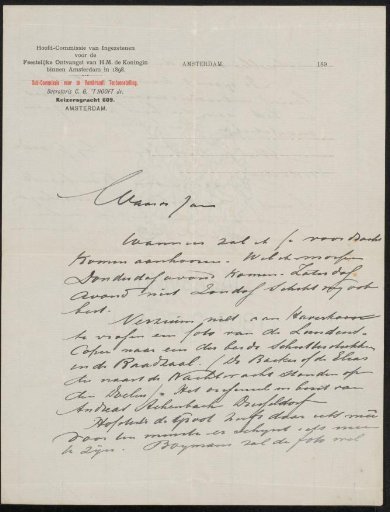 Hoofd-Commissie van Ingezetenen
voor de
Feestelijke Ontvangst van H.M. de Koningin
binnen Amsterdam in 1898.
Sub-Commissie voor de Rembrandt Tentoonstelling.
Secretaris C. G. 'T HOOFT Jr.
Keizersgracht 609.
AMSTERDAM.
AMSTERDAM, 189
Waarde Jan
Wanneer zal ik je voordracht
komen aanhooren. Wil ik morgen
Donderdagavond komen. Zaterdag
avond niet Zondag schikt mij ook
best.
Verzuim niet aan Haverkorn
te vragen een foto van de Londen
Copie naar een der beide Schuttersstukken
in de Raadzaal / De Backer of de Elias
die naast de Nachtwacht stonden op
den Doelen /. Het origineel in bezit van
Andreas Achenbach Dusseldorf
Hofstede de Groot zegt daar echt
voor ten minste er schijnt iets
te zijn. Boymans zal de foto wel